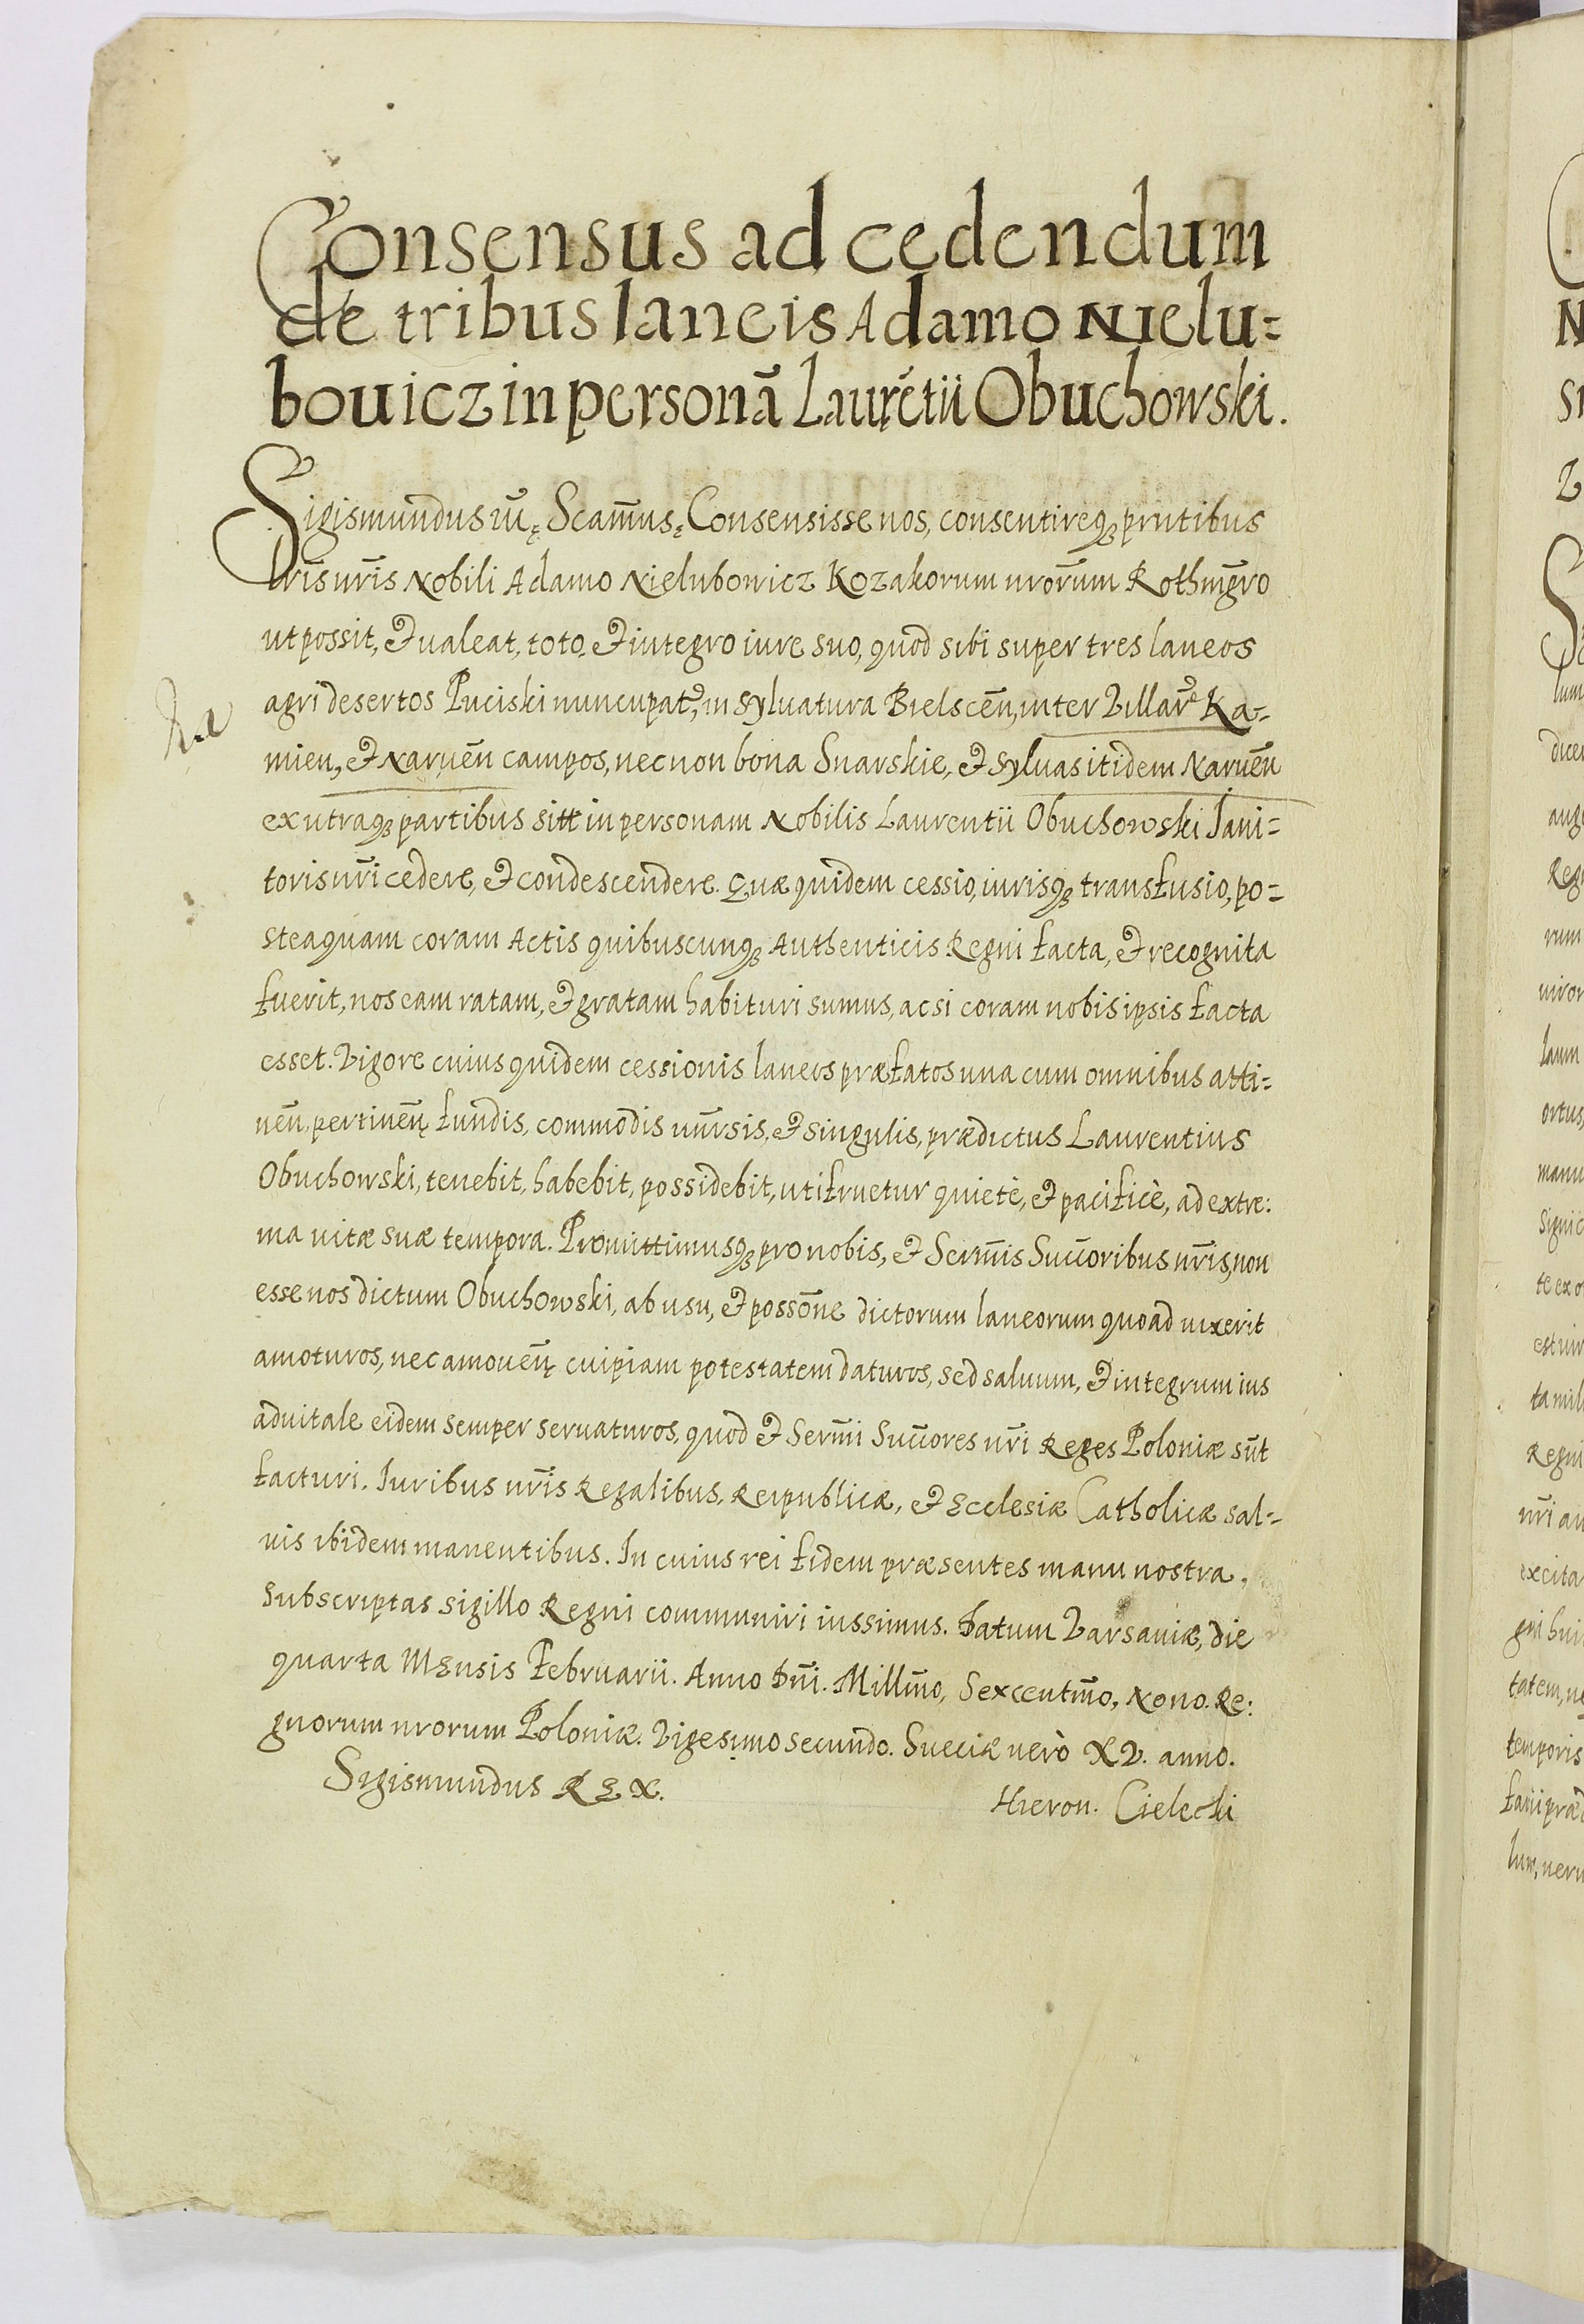 Consensus ad cedendum
de tribus laneis Adamo Nielu=
bouicz in personā Laurētii Obuchowski.
Sigismundus Scam̄us, Consensisse nos, consentireq3 prntibus
lrīs nr̄is Nobili Adamo Nielubowicz Kozakorum nrōrum Rothmgro
ut possit, et ualeat, toto, et integro iure suo, quod sibi super tres laneos
agri desertos Puciski nuncupat, in syluatura Bielscēn, inter Villar Ka-
mien, et Naruēn campos, nec non bona Snarskie, et syluas itidem Naruēn
ex utraq3 partibus sitt in personam Nobilis Laurentii Obuchowski Iani=
toris nr̄i cedere, et condescendere. Quæ quidem cessio, iurisq3 transfusio, po=
steaquam coram Actis quibuscunq3 Authenticis Regni facta, et recognita
fuerit, nos eam ratam, et gratam habituri sumus, ac si coram nobis ipsis facta
esset. Vigore cuius quidem cessionis laneos præfatos una cum omnibus atti=
nēn, pertinēn fundis, commodis un̄rsis, et singulis, prædictus Laurentius
Obuchowski, tenebit, habebit, possidebit, utifruetur quietè, et pacificè, ad extre:
ma uitæ suæ tempora. Promittimusq3 pro nobis, et Serm̄is Succoribus nr̄is, non
esse nos dictum Obuchowski, ab usu, et possōne dictorum laneorum quoad uixerit
amoturos, nec amouēn cuipiam potestatem daturos, sed saluum, et integrum ius
aduitale eidem semper seruaturos, quod et Serm̄i Succores nr̄i Reges Poloniæ sūt
facturi. Iuribus nr̄is Regalibus, Reipublicæ, et Ecclesiæ Catholicæ sal=
uis ibidem manentibus. In cuius rei fidem præsentes manu nostra
subscriptas sigillo Regni communiri iussimus. Datum Varsauiæ, die
quarta Mensis Februarii. Anno Dn̄i. Millm̄o, Sexcentm̄o, Nono. Re:
gnorum nrorum Poloniæ. Vigesimo secundo. Sueciæ uerò XV. anno.
Sigismundus REX.
Hieron. Cielecki